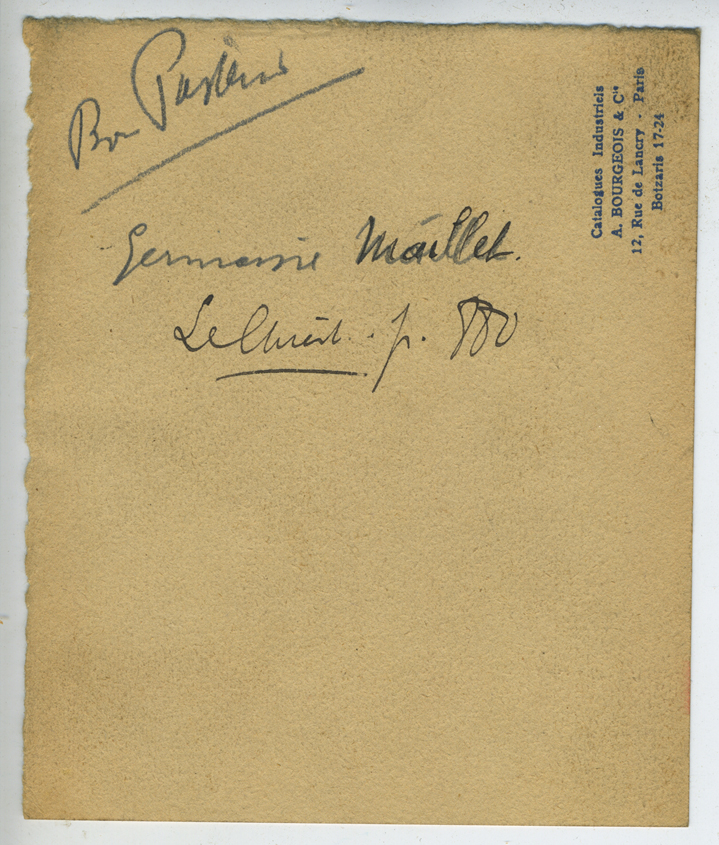 Bon Pasteur
Germaine Maillet.
Le Christ. p. 880
Catalogues Industriels
A. BOURGEOIS & Cⁱᵉ
12, Rue de Lancry - Paris
Botzaris 17-24